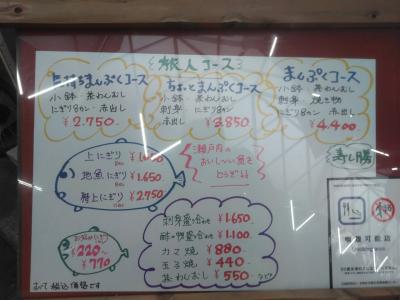 旅人コース
気持ちまんぷくコース
小鉢 茶わんむし
にぎり8カン 赤出し
¥2.750
ちょっとまんぷくコース
小鉢 茶わんむし
刺身 にぎり8カン
赤出し
¥3.850
まんぷくコース
小鉢 茶わんむし
刺身 焼き物
にぎり8カン 赤出し
¥4.400
上にぎり
地魚にぎり ¥1.650
特上にぎり ¥2.750
瀬戸内の
おいしい魚を
どうぞ!!
寿し勝
お好みにぎり
¥220〜
¥770
刺身盛合わせ ¥1.650
酢の物盛合わせ ¥1.100
カマ焼 ¥880
玉子焼 ¥440
茶わんむし ¥550 などなど
すべて税込価格です
喫煙可能店